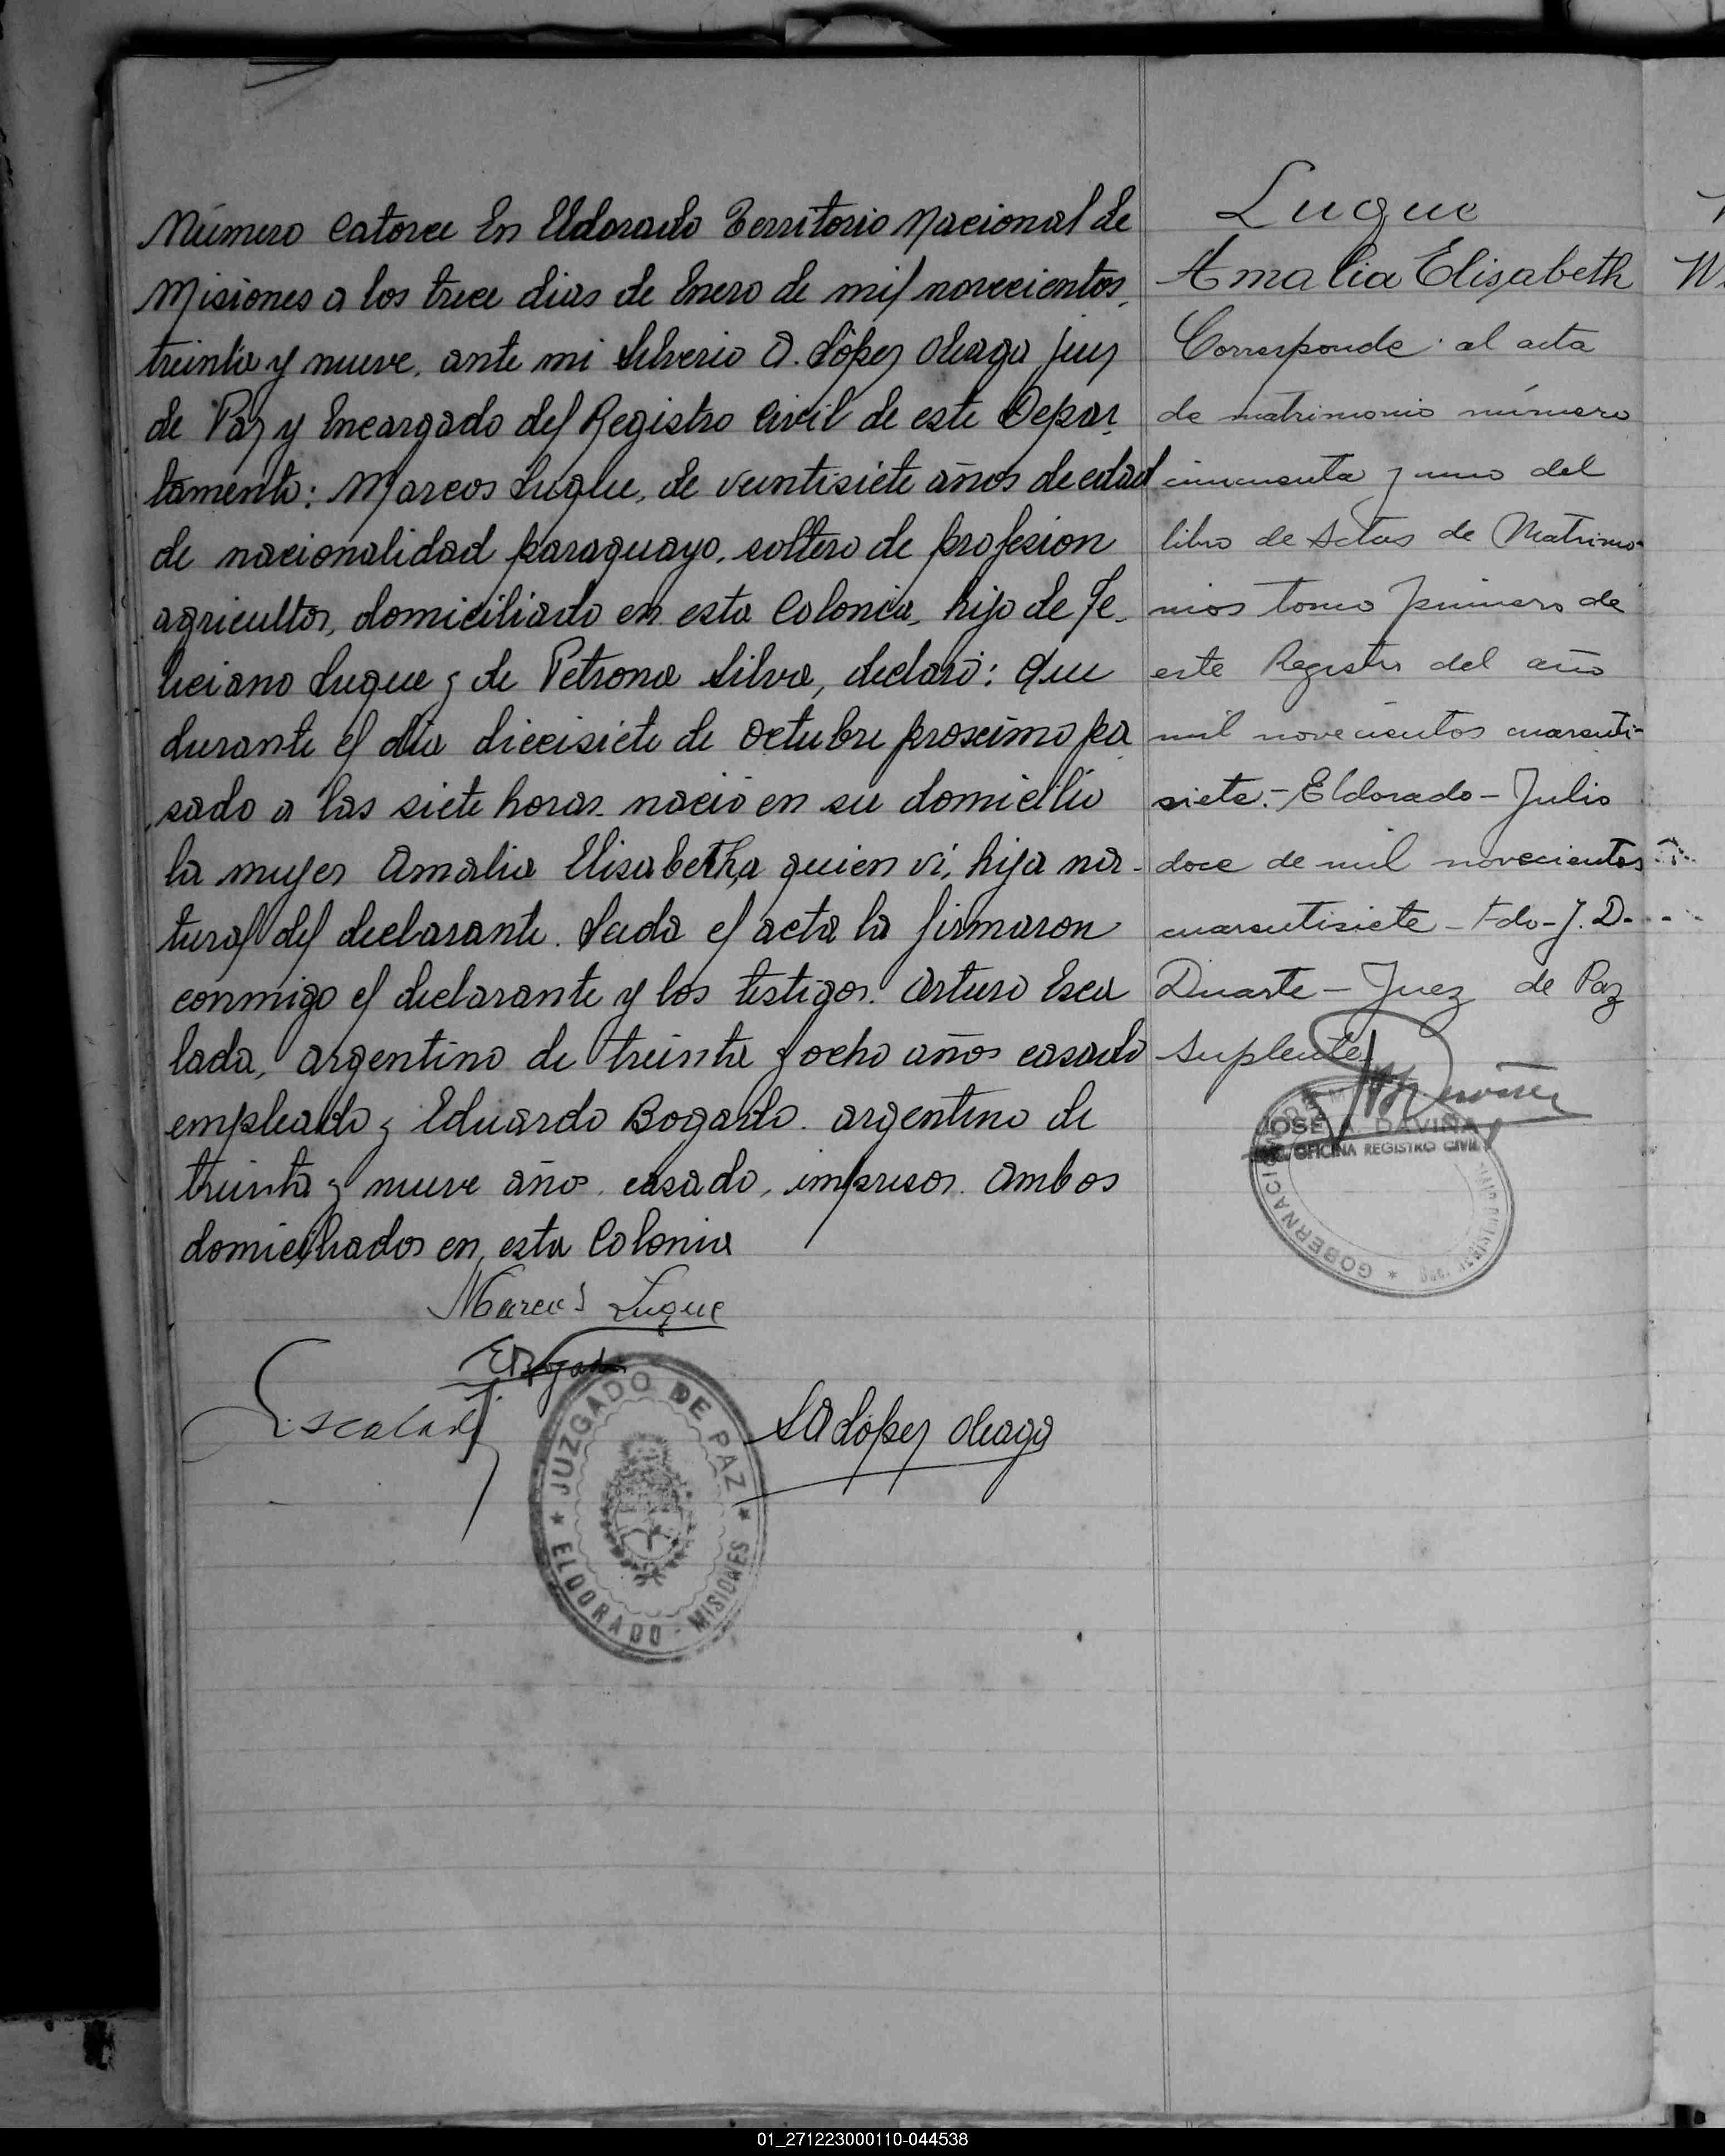 Número Catorce En Eldorado Territorio Nacional de
Misiones a los trece dias de Enero de mil novecientos
treinta y nueve, ante mi Silverio A. López Oleaga juez
de Paz y Encargado del Registro Civil de este Depar
tamento: Marcos Luque, de veintisiete años de edad
de nacionalidad paraguayo, soltero de profesion
agricultor, domiciliado en esta Colonia, hijo de Fe-
liciano Luque y de Petrona Silva, declaró: Que
durante el dia diecisiete de octubre proximo pa
sado a las siete horas nació en su domicilio
la mujer Amalia Elisabetha quien vi, hija na-
tural del declarante. Leida el acta la firmaron
conmigo el declarante y los testigos: Arturo Esca
lada, argentino de treinta y ocho años casado
empleado y Eduardo Bogardo. argentino de
treinta y nueve años casado, impresor. Ambos
domiciliados en esta Colonia
Marcos Luque
EBogado
Escalada
SALópez Oleaga
JUZGADO DE PAZ
ELDORADO - MISIONES
Luque
Amalia Elisabeth
Corresponde al acta
de matrimonio número
cincuenta y uno del
libro de Actas de Matrimo-
nios tomo primero de
este Registro del año
mil novecientos cuarenti-
siete.- Eldorado - Julio
doce de mil novecientos
cuarentisiete - Fdo - J. D.
Duarte - Juez de Paz
Suplente
JOSE A. DAVIÑA
OFICINA REGISTRO CIVIL
GOBERNACION
01_271223000110-044538